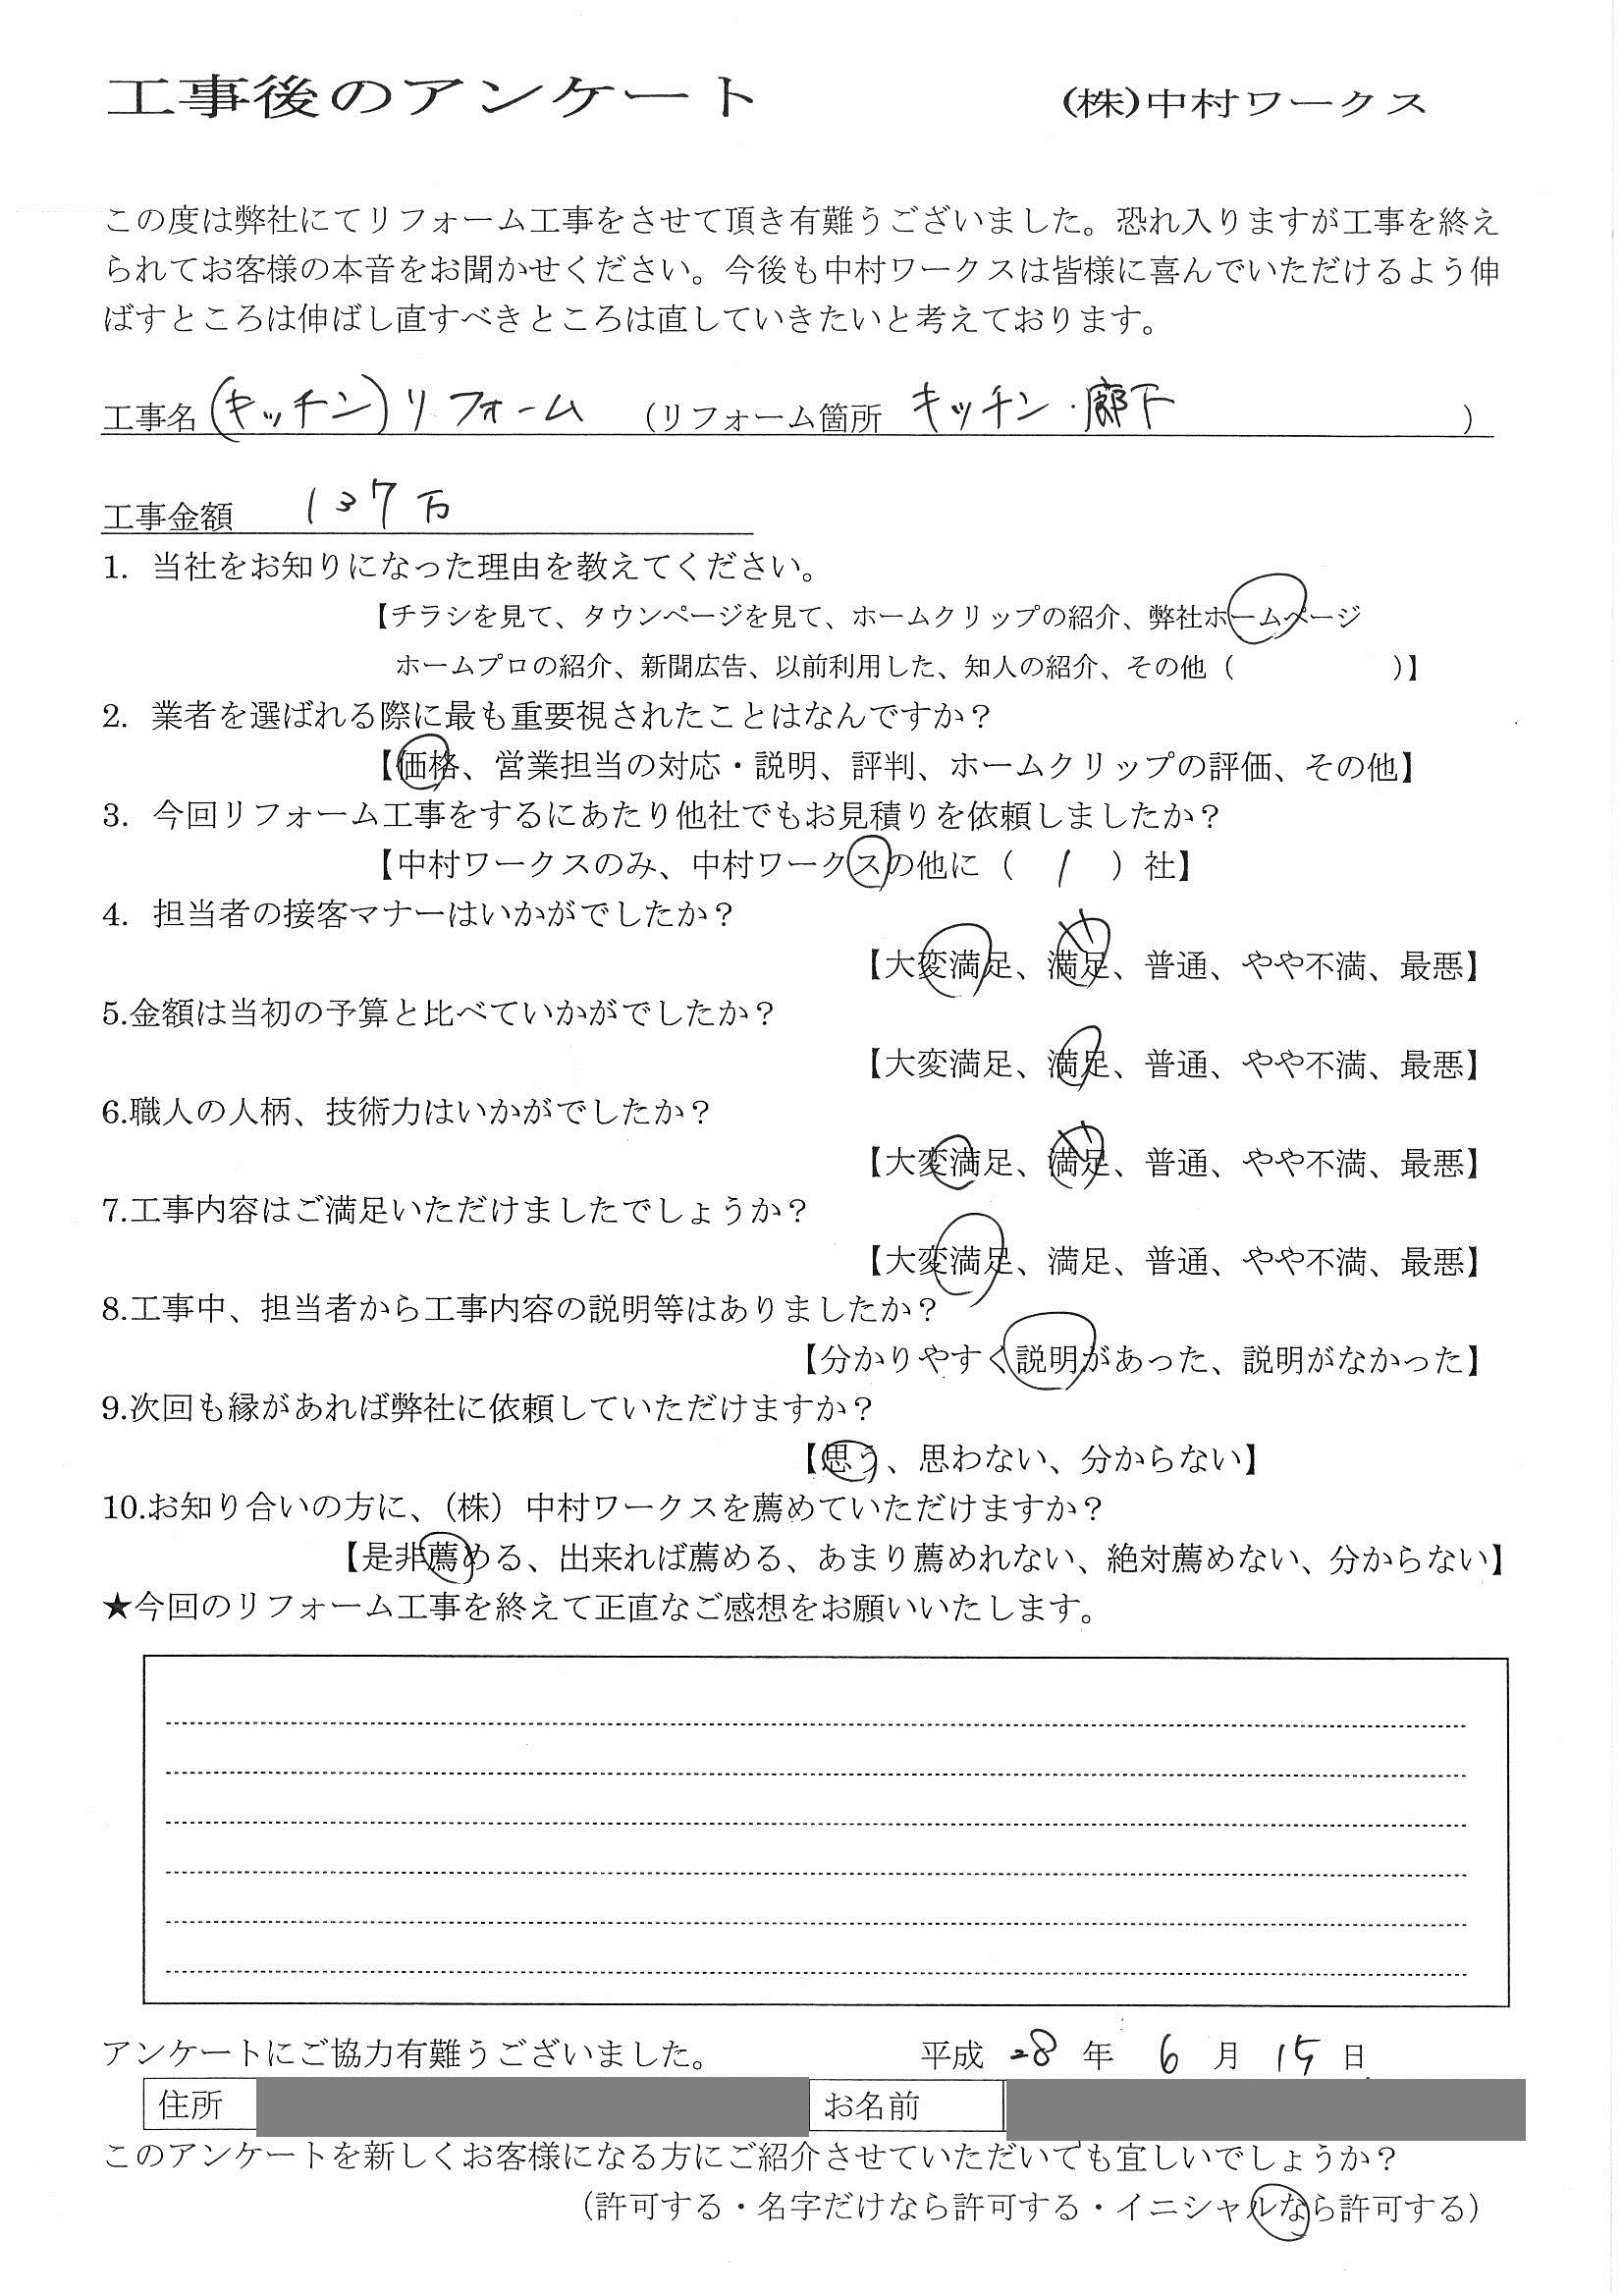 工事後のアンケート　(株)中村ワークス
この度は弊社にてリフォーム工事をさせて頂き有難うございました。恐れ入りますが工事を終え
られてお客様の本音をお聞かせください。今後も中村ワークスは皆様に喜んでいただけるよう伸
ばすところは伸ばし直すべきところは直していきたいと考えております。
工事名 (キッチン)リフォーム （リフォーム箇所 キッチン・廊下 ）
工事金額 137万
1. 当社をお知りになった理由を教えてください。
【チラシを見て、タウンページを見て、ホームクリップの紹介、弊社ホームページ
ホームプロの紹介、新聞広告、以前利用した、知人の紹介、その他（ ）】
2. 業者を選ばれる際に最も重要視されたことはなんですか？
【価格、営業担当の対応・説明、評判、ホームクリップの評価、その他】
3. 今回リフォーム工事をするにあたり他社でもお見積りを依頼しましたか？
【中村ワークスのみ、中村ワークスの他に（ 1 ）社】
4. 担当者の接客マナーはいかがでしたか？
【大変満足、満足、普通、やや不満、最悪】
5.金額は当初の予算と比べていかがでしたか？
【大変満足、満足、普通、やや不満、最悪】
6.職人の人柄、技術力はいかがでしたか？
【大変満足、満足、普通、やや不満、最悪】
7.工事内容はご満足いただけましたでしょうか？
【大変満足、満足、普通、やや不満、最悪】
8.工事中、担当者から工事内容の説明等はありましたか？
【分かりやすく説明があった、説明がなかった】
9.次回も縁があれば弊社に依頼していただけますか？
【思う、思わない、分からない】
10.お知り合いの方に、（株）中村ワークスを薦めていただけますか？
【是非薦める、出来れば薦める、あまり薦めれない、絶対薦めない、分からない】
★今回のリフォーム工事を終えて正直なご感想をお願いいたします。
アンケートにご協力有難うございました。 平成 28 年 6 月 15 日
住所 お名前
このアンケートを新しくお客様になる方にご紹介させていただいても宜しいでしょうか？
（許可する・名字だけなら許可する・イニシャルなら許可する）